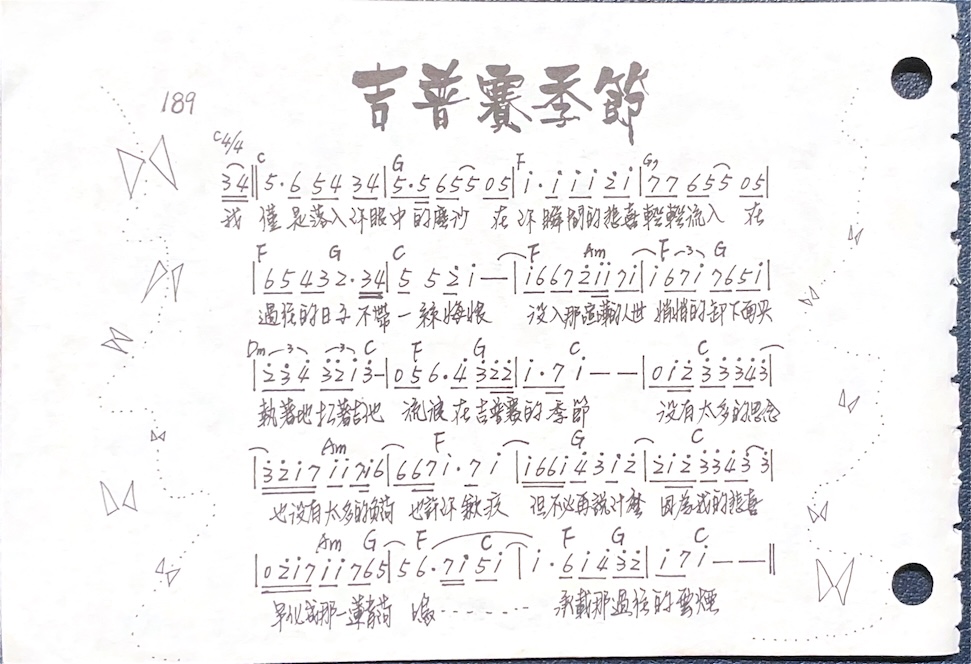 吉普賽季節
189
C4/4
C G F G7
34‖5·6 54 34|5·5 655 05|i·i i i 2 i|7 7 655 05|
我 僅是落入你眼中的塵沙 在你瞬間的悲喜輕輕流入 在
F G C F Am F 3 G
|65432·34|5 5 2 i —|i6672ii7i|i67i 765i|
過往的日子不帶一絲悔恨 沒入那 悄悄的卸下面具
Dm 3 3 C F G C C
|234 32i3-|056·4 322|i·7 i — —|0i2 33343|
執著地 流浪在吉普賽的季節 沒有太多的思念
Am F G C
|32i7 ii7i6|667i·7 i|i66i43i2|2i233433|
也沒有太多的負荷 也許你 但不必再說什麼 因為我的悲喜
Am G F C F G C
|02i7ii765|56·7i5i|i·6i432|i7i — —‖
早化成那一 承載那過往的雲煙